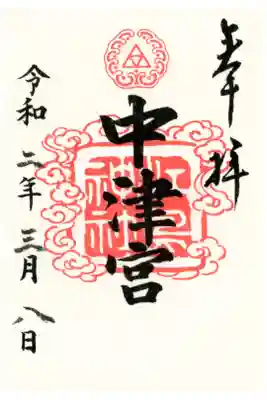 奉拝
中津宮
令和二年三月八日